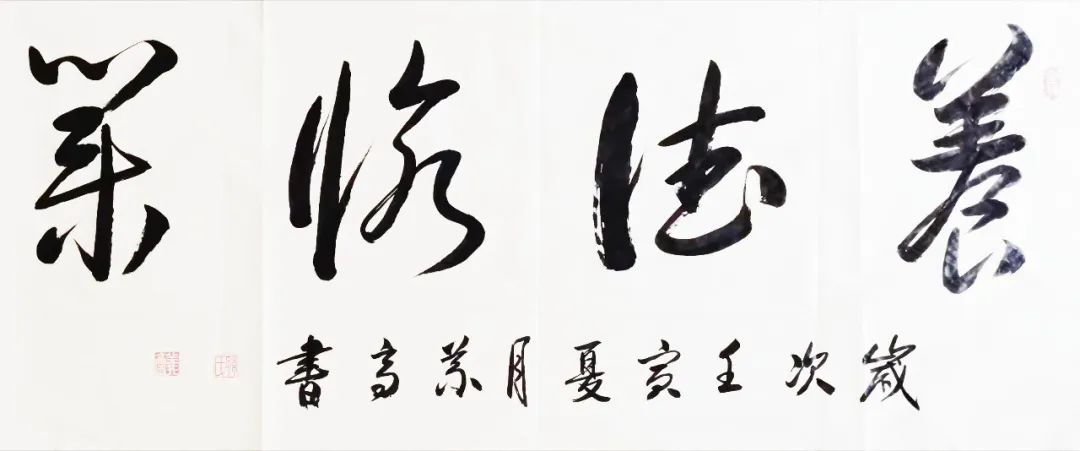 養德修業
歲次壬寅夏月高書